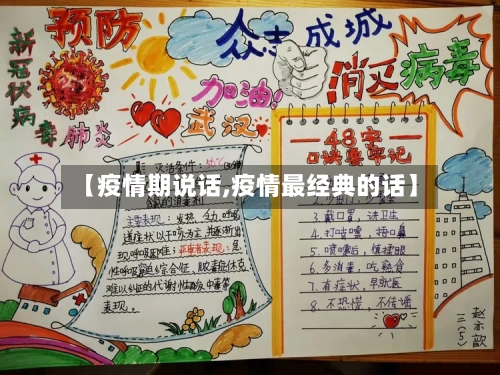 预防
众志成城
消灭病毒
新冠状病毒肺炎
加油!
武汉
【疫情期说话,疫情最经典的话】
灭活条件：56℃
主要表现：发热、乏力、呼吸
道症状以干咳为主,并逐渐出
现呼吸困难；严重者表现：急
性呼吸窘迫综合征、脓毒症休克、
难以纠正的代谢性酸中毒等
表现。
48字
口诀要牢记
3.戴口罩，讲卫生
4.打喷嚏，捂口鼻
5.喷嚏后，慎揉眼
6.多消毒，吃熟食
7.有症状，早就医
8.不恐慌，不传谣
三（5）